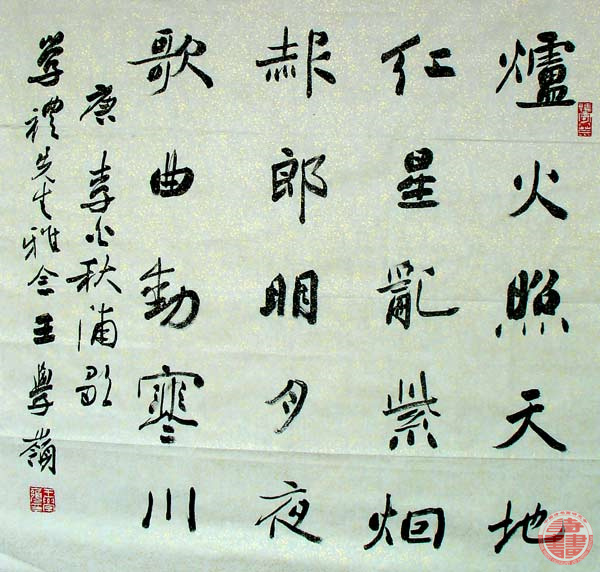 爐火照天地
紅星亂紫烟
赧郎明月夜
歌曲動寒川
唐 李白秋浦歌
學禮先生雅念 王學嶺